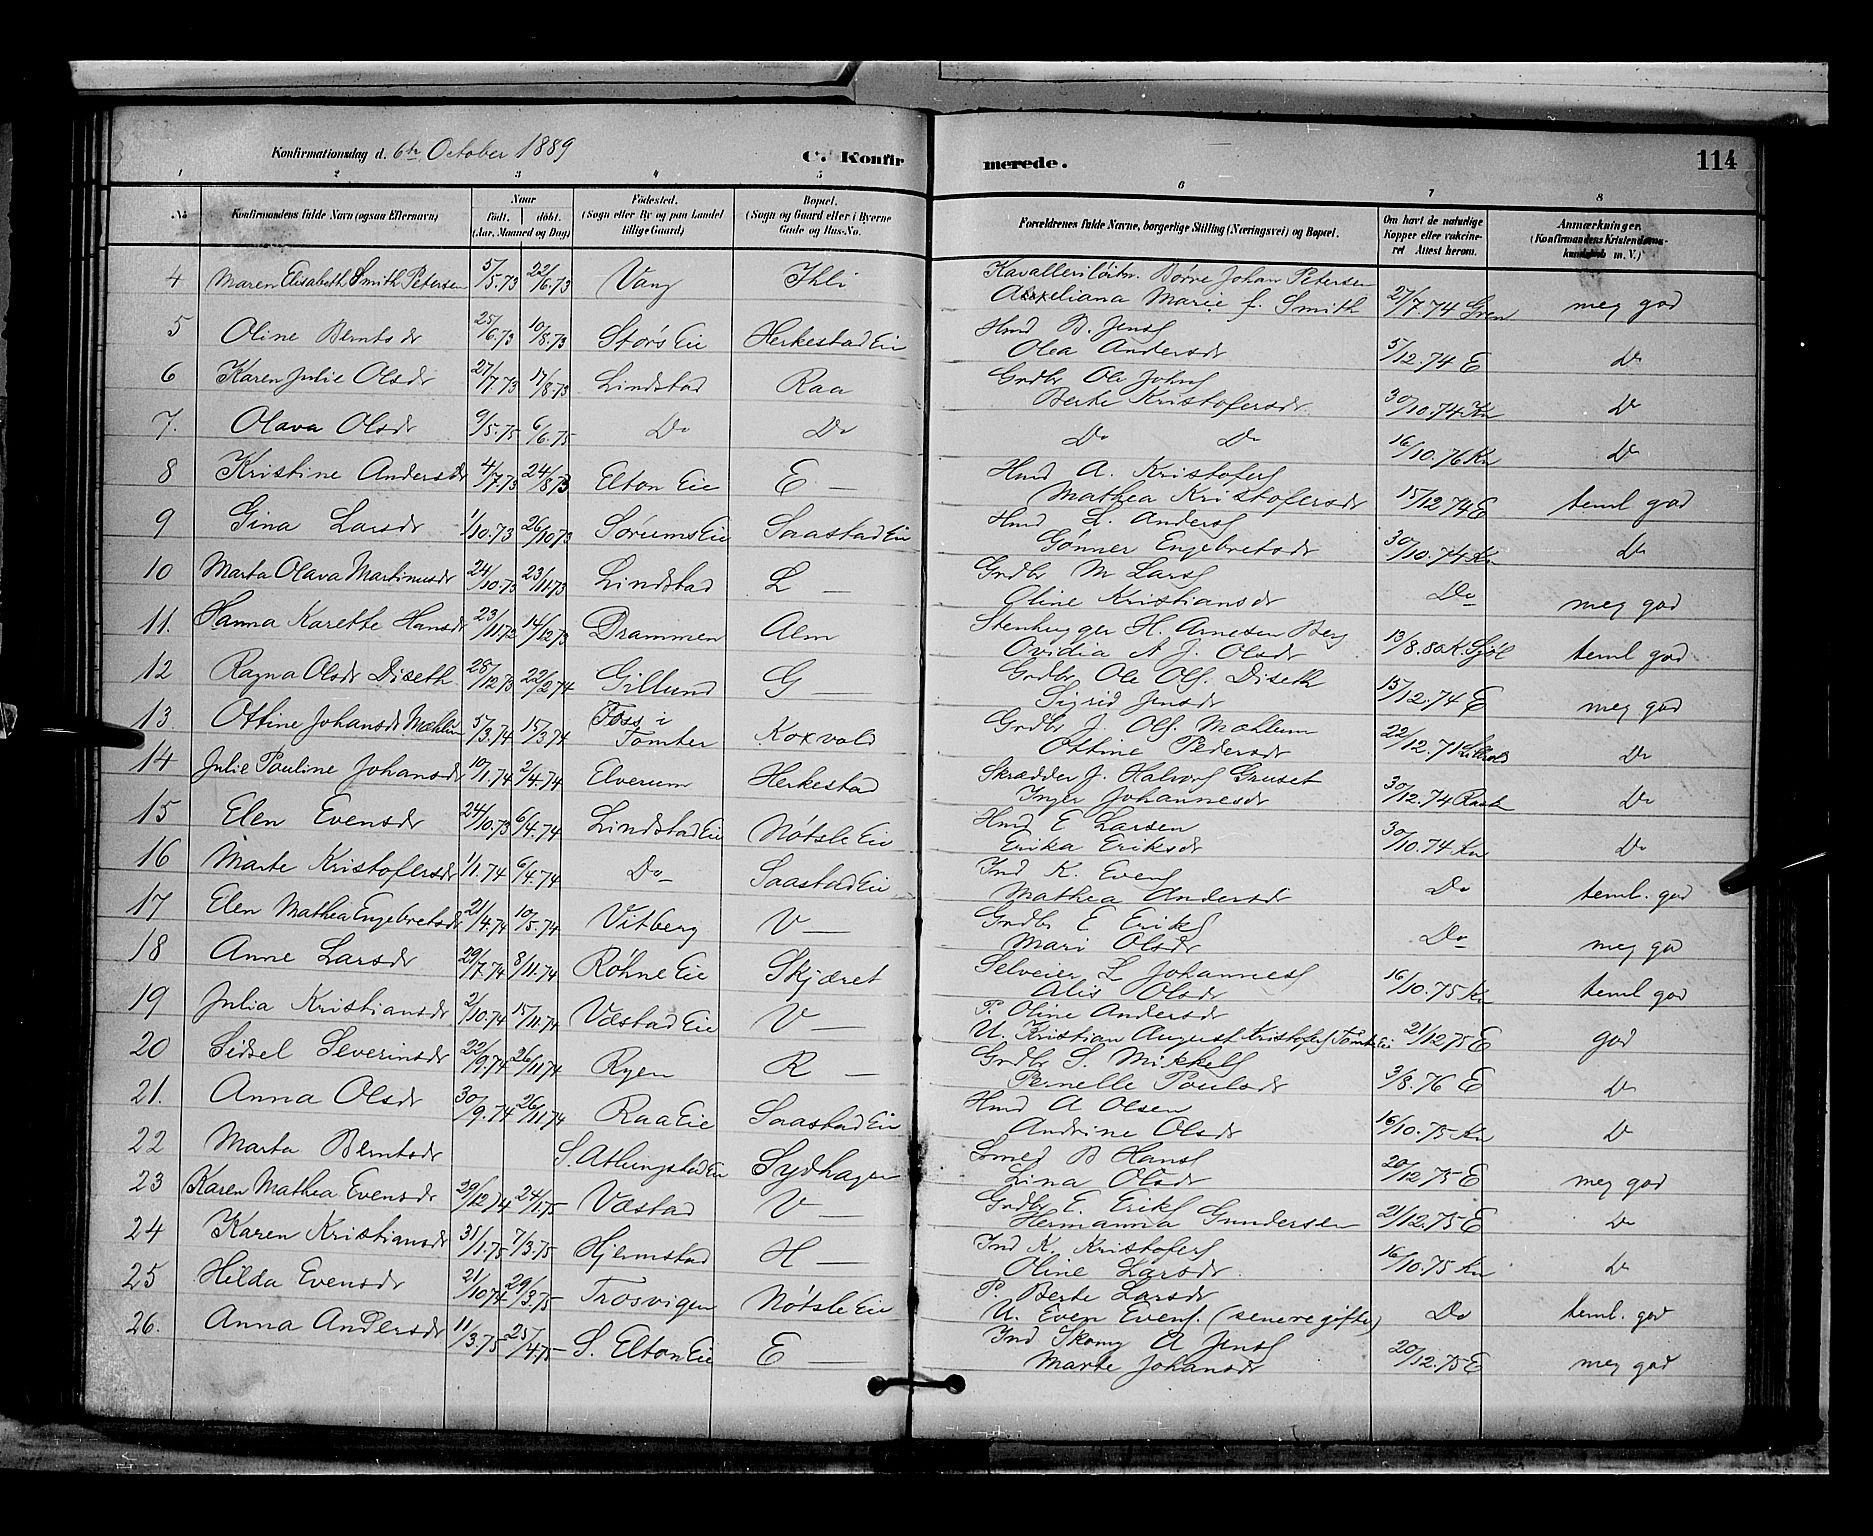 Konfirmationsdag d. 6te October 1889 C. Konfirmerede. 114
1 2 3 4 5 6 7 8
No Konfirmandens fulde Navn (ogsaa Efternavn) Naar født. døbt. (Aar, Maaned og Dag) Fødested. (Sogn eller By og paa Landet tillige Gaard) Bopæl. (Sogn og Gaard eller i Byerne Gade og Hus-No. Forældrenes fulde Navne, borgerlige Stilling (Næringsvei) og Bopæl. Om havt de naturlige Kopper eller vakcineret Attest herom. Anmærkninger. (Konfirmandens Kristendomskundskab m. V.)
4 Maren Elisabeth Smith Petersen 5/5.73 22/6.73 Vang Ihli Kavallerilöitn. Børre Johan Petersen
Marie f. Smith 27/7.74 Gren meg god
5 Oline Berntsdr 25/6.73 10/8.73 Störs Eie Herkestad Eie Hmd B. Jensf
Olea Andersdr 5/12.74 E Do
6 Karen Julie Olsdr 27/7.73 17/8.73 Lindstad Raa Grdbr Ole Johnsf
Berte Kristofersdr 30/10.74 Kn Do
7. Olava Olsdr 9/5.75 6/6.75 Do Do Do Do 16/10.76 Kn Do
8 Kristine Andersdr 4/7.73 24/8.73 Elton Eie E — Hmd A. Kristofersf
Mathea Kristofersdr 15/12 74 E teml god
9 Gina Larsdr 1/10.73 26/10.73 Sörums Eie Saastad Eie Hmd L. Andersf
Gønner Engebretsdr 30/10.74 Kn Do
10 Marta Olava Martinusdr 24/10.73 23/11.73 Lindstad L — Grdbr M Larsf
Oline Kristiansdr Do meg god
11. Hanna Karette Hansdr 23/11 73 14/12 73 Drammen Alm Stenhugger H. Arnesen Berg
Ovidia A J. Olsdr 13/8.80 K. Sjöl teml god
12 Ragna Olsdr Diseth 28/12.73 22/2 74 Gillund G — Grdbr Ole Olsf. Diseth
Sigrid Jensdr 15/12.74 E meg god
13. Ottine Johansdr Mæhlum 5/3.74 15/3 74 Foss i
Tomter Koxvold Grdbr J. Olsf. Mæhlum
Ottine Pedersdr 22/12.71 Do
14 Julie Pauline Johansdr 10/1.74 2/4.74 Elverum Herkestad Skrædder J. Halvorsf Gruset
Inger Johannesdr 30/12.74 Do
15 Elen Evensdr 24/10.73 6/4.74 Lindstad Eie Nötsle Eie Hmd E Larsen
Erika Eriksdr 30/10.74 Kn Do
16 Marte Kristofersdr 1/1.74 6/4.74 Do Saastad Eie Ind K. Evensf
Mathea Andersdr Do teml. god
17 Elen Mathea Engebretsdr 21/4.74 10/5.74 Vitberg V — Grdbr E Eriksf
Mari Olsdr Do meg god
18 Anne Larsdr 29/7.74 8/11.74 Röhne Eie Skjæret Selveier L Johannesf
Alis Olsdr 16/10.75 Kn teml god
19 Julia Kristiansdr 2/10.74 15/11.74 Væstad Eie V — P. Oline Andersdr
U. Kristian August Kristofersf Tomter Eie 21/12.75 E god
20 Sidsel Severinsdr 22/9.74 26/11.74 Ryen R — Grdbr S. Mikkelsf
Pernelle Poulsdr 3/8.76 E Do
21. Anna Olsdr 30/9.74 26/11 74 Raa Eie Saastad Eie Hmd A Olsen
Andrine Olsdr 16/10.75 Kn Do
22 Marta Berntsdr S. Athingstad Eie Sydhagen Smed B Hansf
Lina Olsdr 20/12.75 E meg god
23 Karen Mathea Evensdr 29/12.74 24/1.75 Væstad V — Grdbr E. Eriksf
Hermanna Gundersen 21/12.75 E Do
24 Karen Kristiansdr 31/1.75 7/3.75 Hjemstad H — Ind K. Kristofersf
Oline Larsdr. 16/10.75 Kn Do
25 Hilda Evensdr 21/10.74 29/3.75 Trosvigen Nötsle Eie P. Berte Larsdr
U. Even Evensf. (senere gifte) Do teml. god
26. Anna Andersdr 11/3.75 25/4.75 S. Elton Eie E — Ind Skomg A Jensf
Marte Johansdr 20/12.75 E meg god